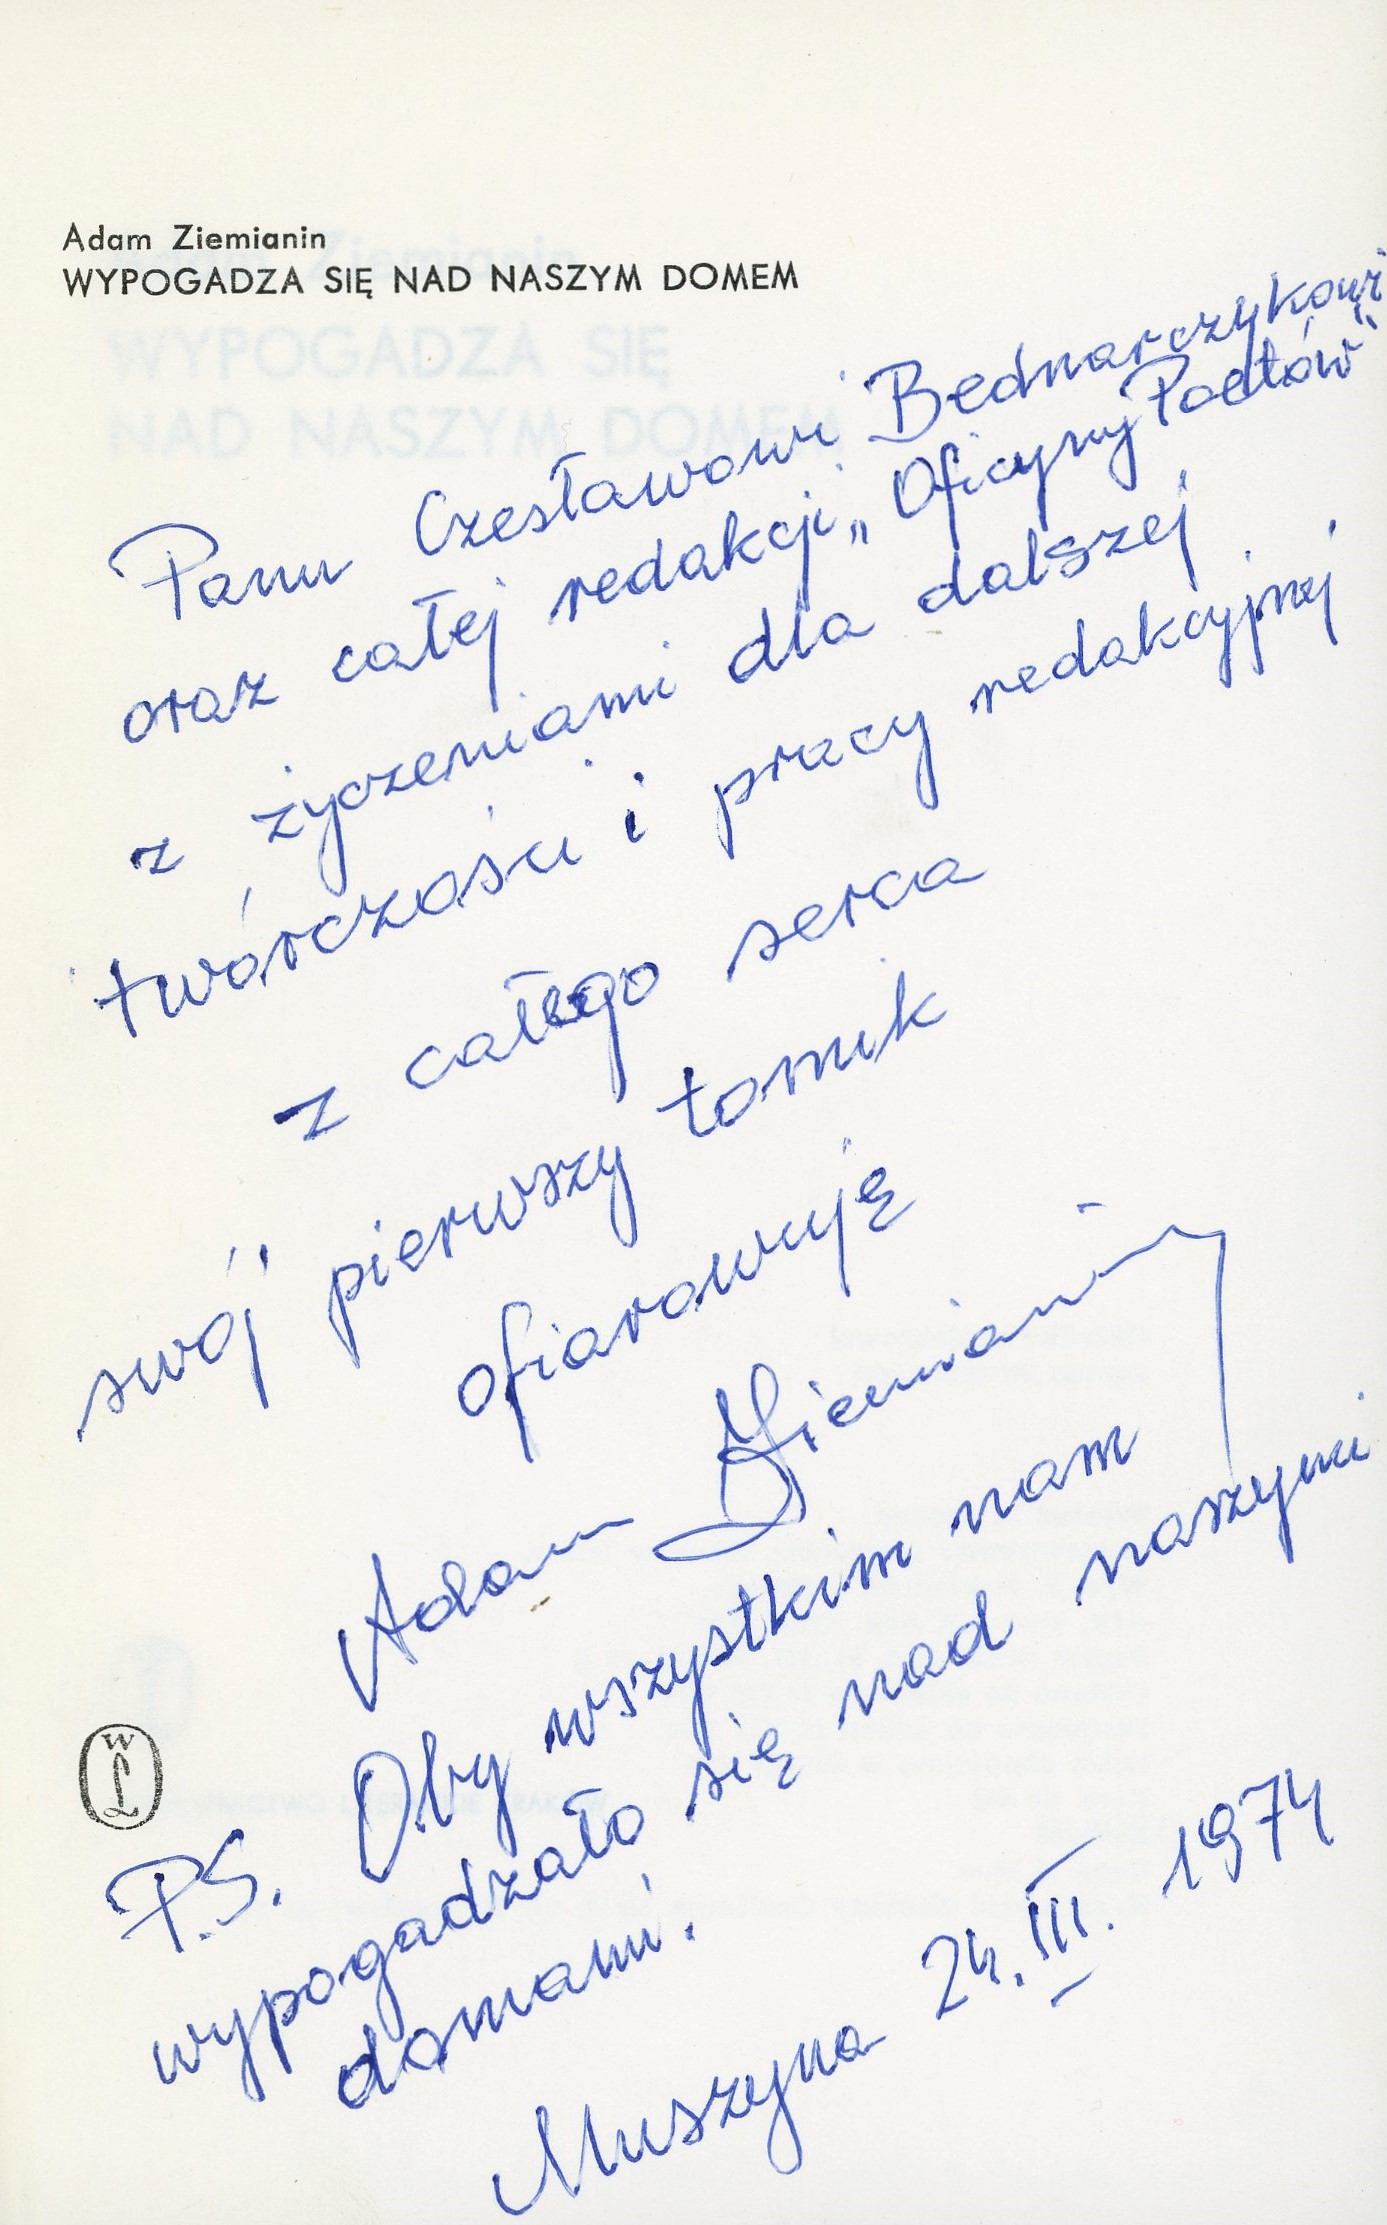 Adam Ziemianin
WYPOGADZA SIĘ NAD NASZYM DOMEM
Panu Czesławowi Bednarczykowi
oraz całej redakcji „Oficyny Poetów"
z życzeniami dla dalszej
twórczości i pracy redakcyjnej
z całego serca
swój pierwszy tomik
ofiarowuję
Adam Ziemianin
P.S. Oby wszystkim nam
wypogadzało się nad naszymi
domami.
Muszyna 24.III.1974
WL